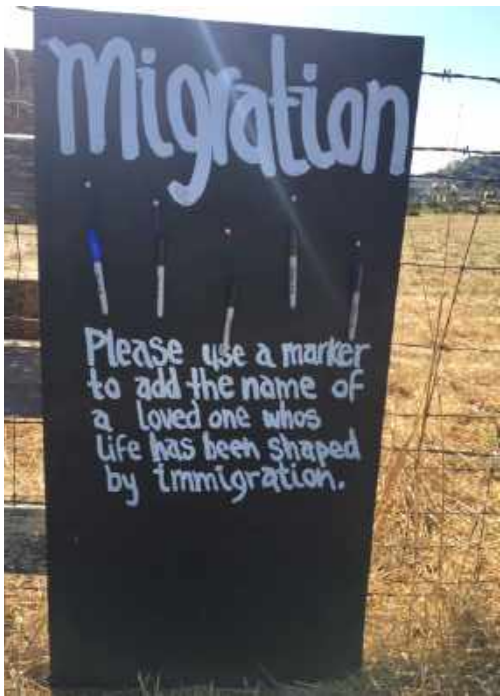 Migration
Please use a marker
to add the name of
a loved one whos
life has been shaped
by immigration.